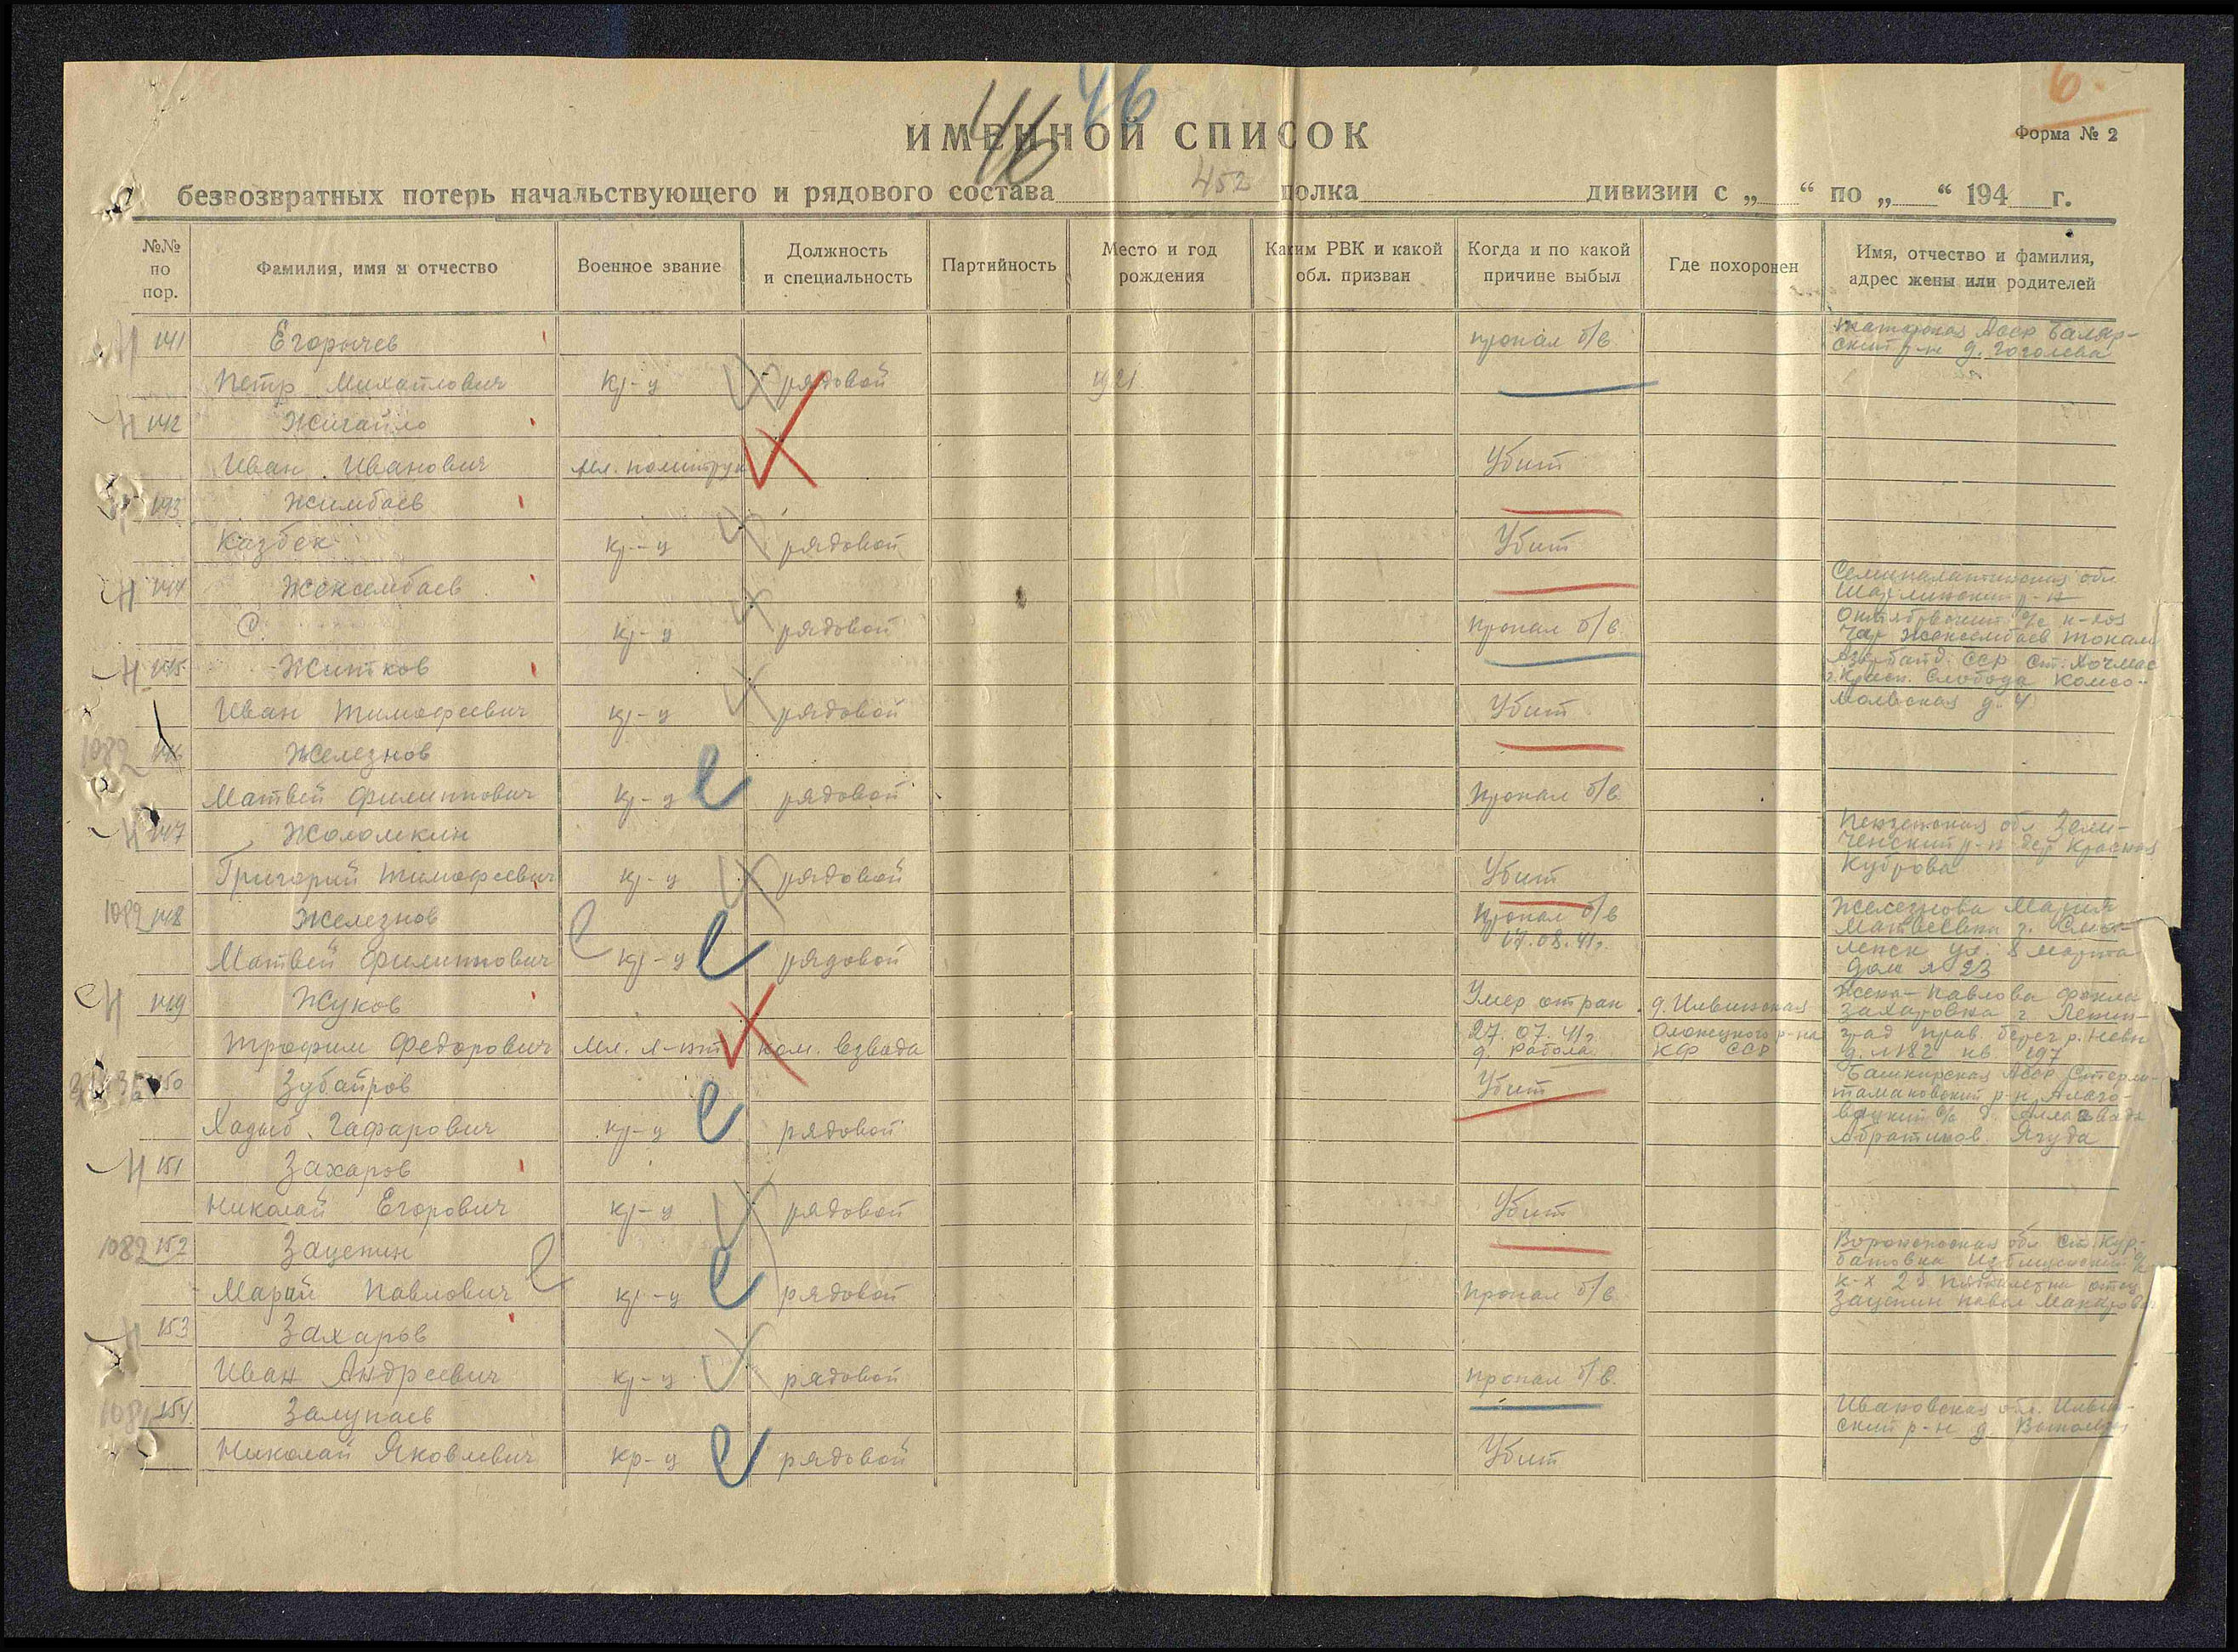 46
46
6.
ИМЕННОЙ СПИСОК
Форма № 2
безвозвратных потерь начальствующего и рядового состава 452 полка дивизии с „ “ по „ “ 194 г.
№№ по пор.
Фамилия, имя и отчество
Военное звание
Должность и специальность
Партийность
Место и год рождения
Каким РВК и какой обл. призван
Когда и по какой причине выбыл
Где похоронен
Имя, отчество и фамилия, адрес жены или родителей
141 Егорычев пропал б/в Татарская АССР
ский р-н д. Гоголева
Петр Михайлович кр-ц рядовой 1921
142 Жигайло
Иван Иванович Мл. политрук Убит
143 Жимбаев
Казбек кр-ц рядовой Убит
144 Женсембаев Семипалатинская обл
р-н
С. кр-ц рядовой пропал б/в
Женсембаев
145 Житков ССР ст. Хочмас
Красн. Слобода Комсо-
Иван Тимофеевич кр-ц рядовой Убит мольская д. 4
1082 146 Железнов
Матвей Филиппович кр-ц рядовой пропал б/в
147 Жоломкин Пензенская обл Земе-
ченский р-н дер Красная
Григорий Тимофеевич кр-ц рядовой Убит Кудрова
1082 148 Железнов пропал б/в Железнова Мария
17.08.41г. Матвеевна г. Смо-
Матвей Филиппович кр-ц рядовой ленск ул. 8 марта
дом № 23
149 Жуков Умер от ран д. Ильинская Жена - Павлова
Захаровна г. Ленин-
Трофим Федорович Мл. л-нт ком. взвода 27.07.41г. Олонецкого р-на град прав. берег р. Невы
д. Рабола КФ ССР д. №182 кв 197
150 Зубаиров Убит Башкирская АССР Стерли-
тамаковский р-н
Хадыб Гафарович кр-ц рядовой
Ягуда
151 Захаров
Николай Егорович кр-ц рядовой Убит
1082 152 Зацепин Воронежская обл ст. Кур-
батовка
Марий Павлович кр-ц рядовой пропал б/в к-з 2я пятилетка отец
Зацепин Павел
153 Захаров
Иван Андреевич кр-ц рядовой пропал б/в.
154 Залупаев Ивановская обл.
ский р-н д.
Николай Яковлевич кр-ц рядовой Убит